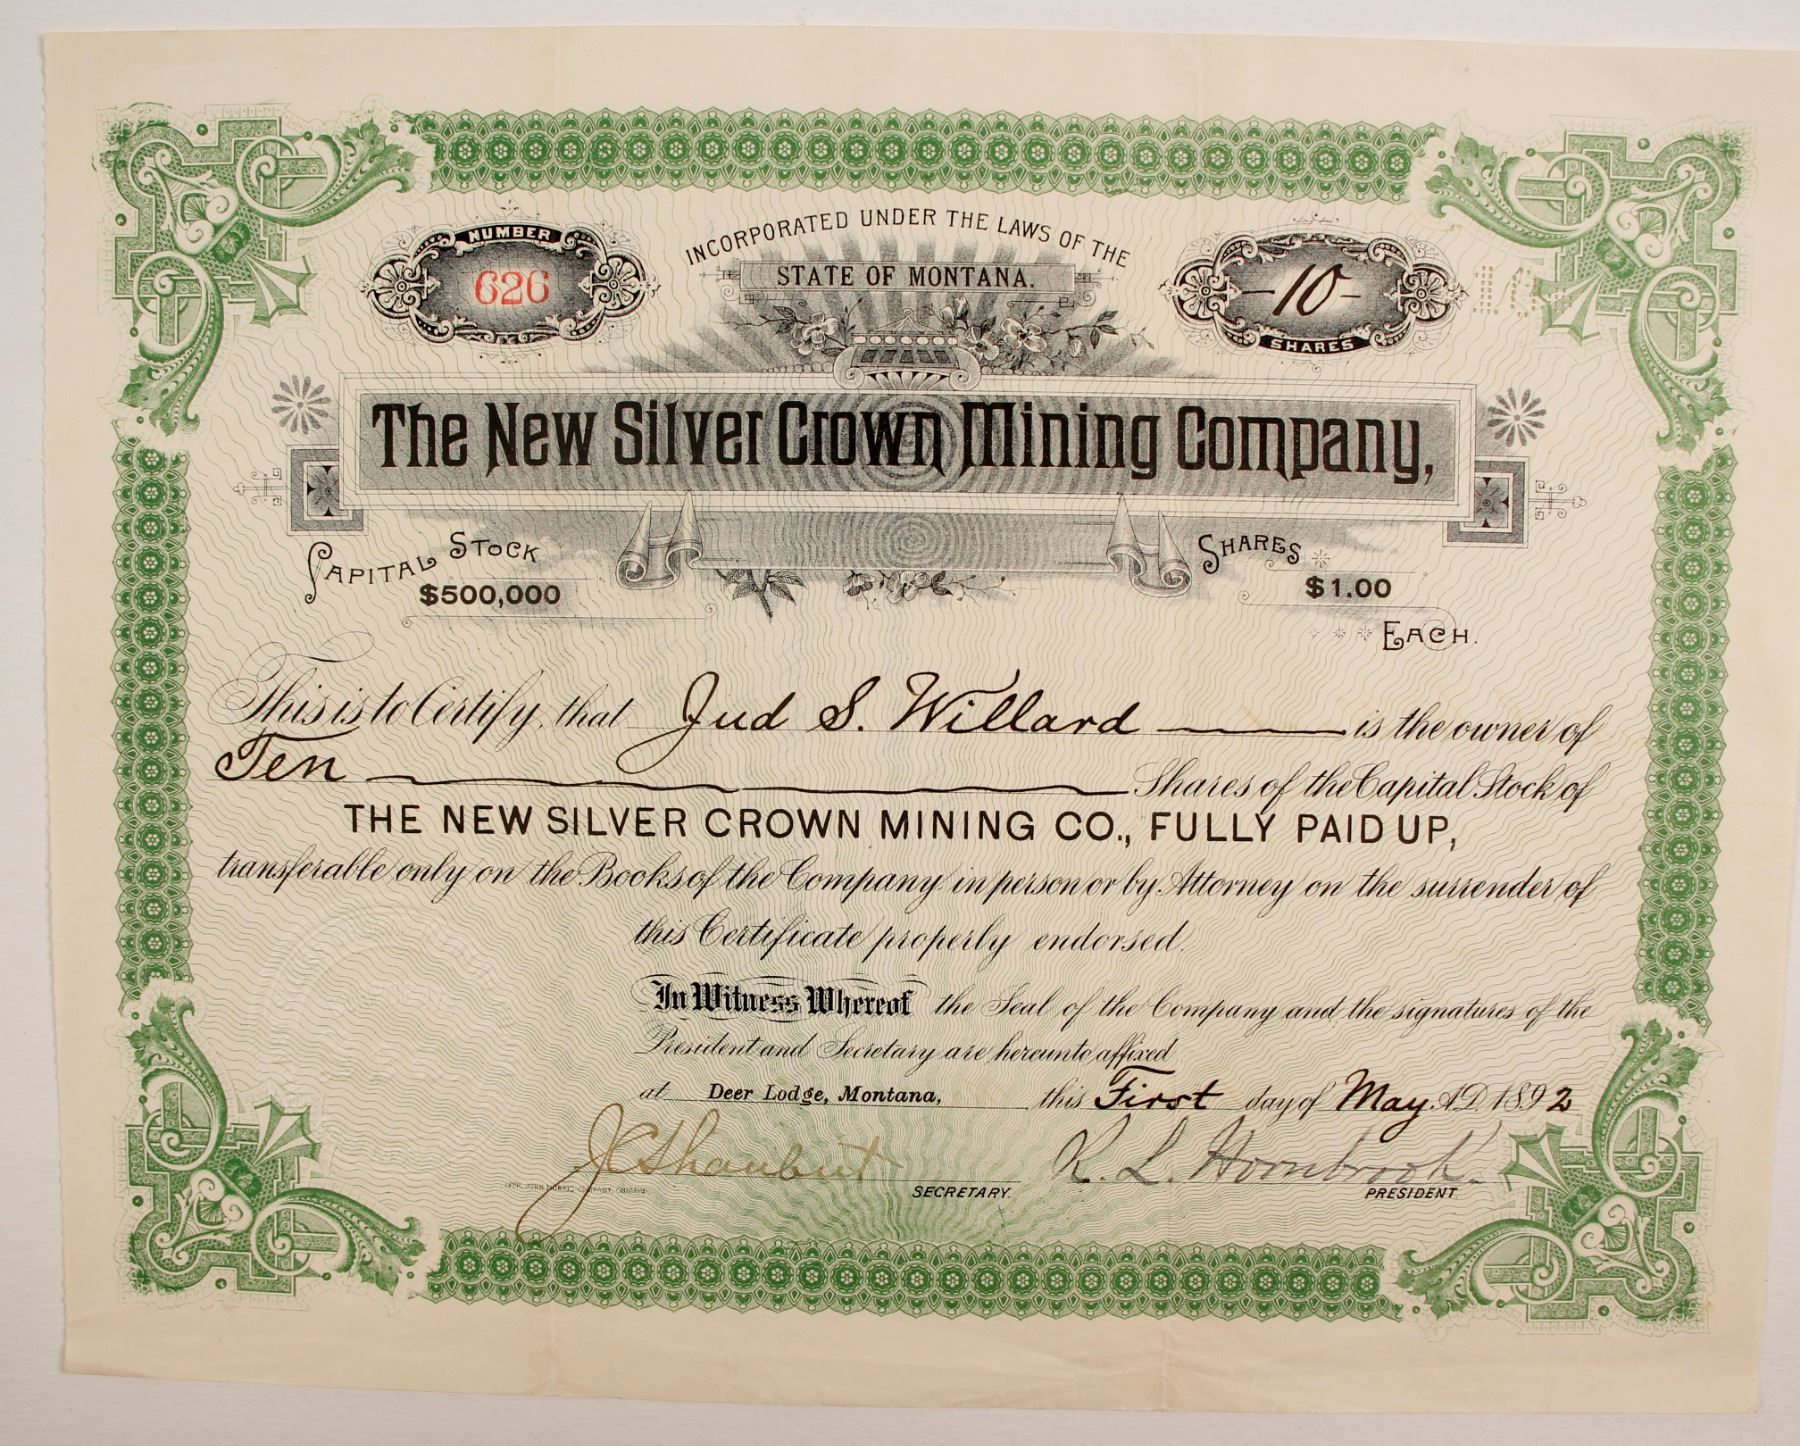 INCORPORATED UNDER THE LAWS OF THE
STATE OF MONTANA.
NUMBER
626
-10-
SHARES
10
The New Silver Crown Mining Company,
CAPITAL STOCK
$500,000
SHARES
$1.00
EACH.
This is to Certify, that Jud S. Willard is the owner of
Ten Shares of the Capital Stock of
THE NEW SILVER CROWN MINING CO., FULLY PAID UP,
transferable only on the Books of the Company in person or by Attorney on the surrender of
this Certificate properly endorsed.
In Witness Whereof the Seal of the Company and the signatures of the
President and Secretary are hereunto affixed
at Deer Lodge, Montana, this First day of May A.D. 1892
J C Shaubut
R. L. Hornbrook
SECRETARY.
PRESIDENT.